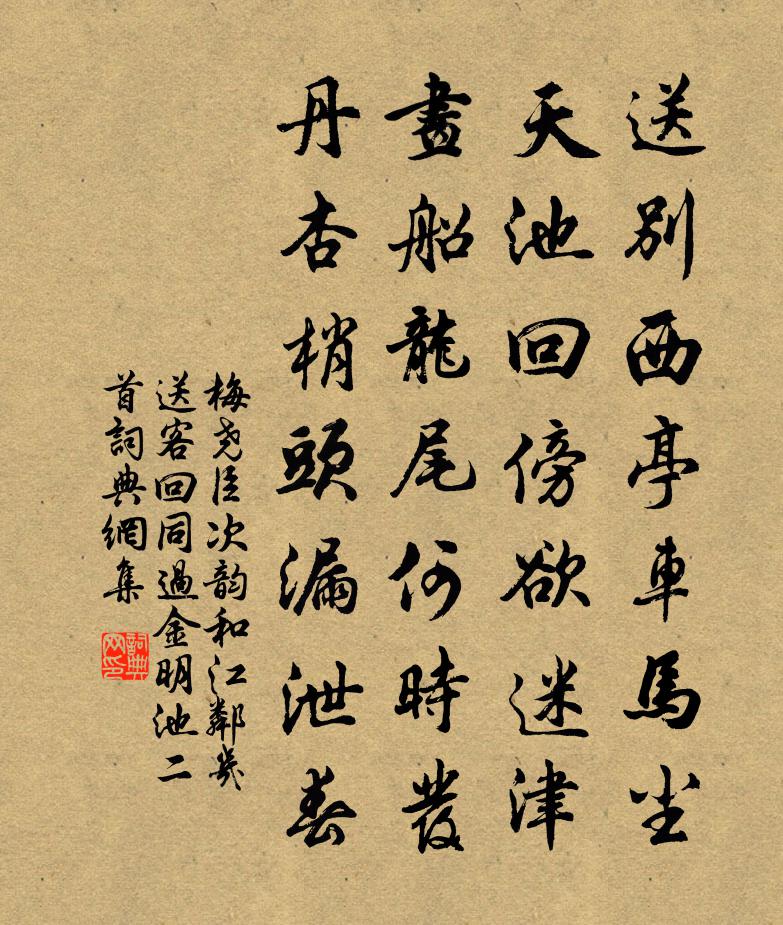 送別西亭車馬尘
天池回傍欲迷津
畫船龍尾何時發
丹杏梢頭漏泄春
梅尧臣次韵和江鄰幾
送客回同過金明池二
首詞典網集
詞典网印